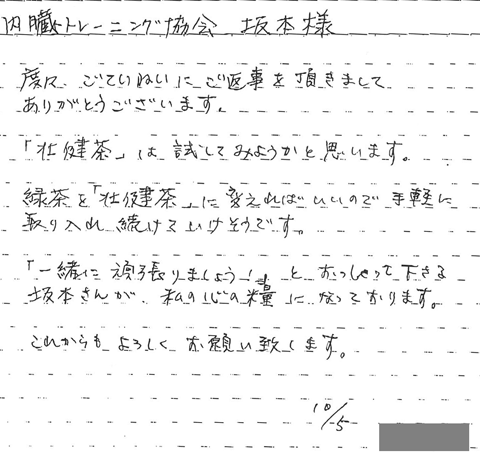 内臓トレーニング協会 坂本様
度々、ごていねいにご返事を頂きまして
ありがとうございます。
「壮健茶」は試してみようかと思います。
緑茶を「壮健茶」に変えればいいので手軽に
取り入れ続けていけそうです。
「一緒に頑張りましょう!」とおっしゃって下さる
坂本さんが、私の心の糧になっております。
これからもよろしくお願い致します。
10/5